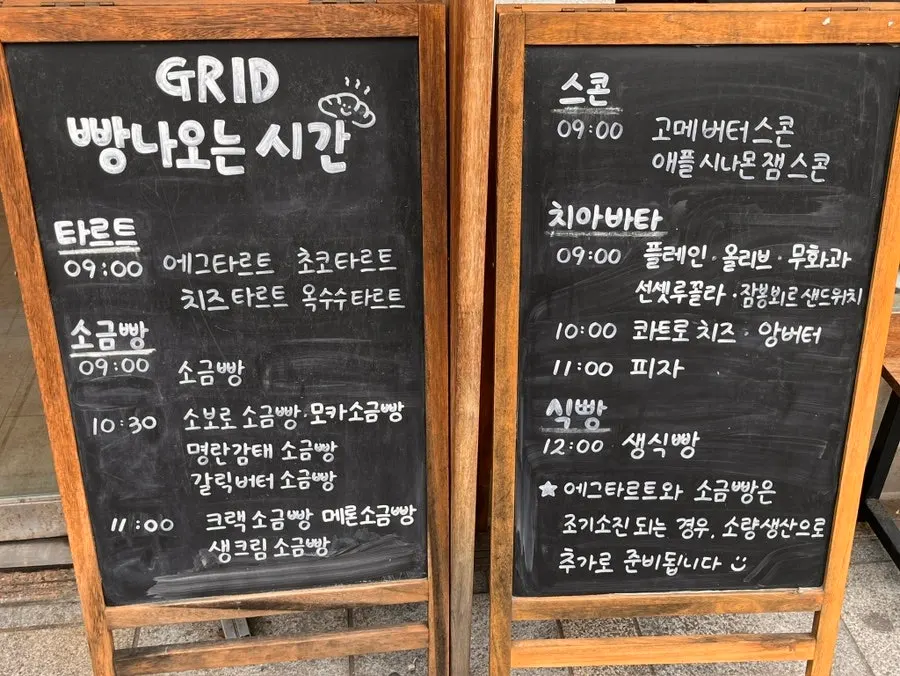 GRID
빵나오는 시간
타르트
09:00 에그타르트 초코타르트
치즈타르트 옥수수타르트
소금빵
09:00 소금빵
10:30 소보로 소금빵·모카소금빵
명란감태 소금빵
갈릭버터 소금빵
11:00 크랙소금빵 메론소금빵
생크림 소금빵
스콘
09:00 고메버터스콘
애플시나몬잼스콘
치아바타
09:00 플레인·올리브·무화과
선셋루꼴라·잠봉뵈르샌드위치
10:00 콰트로치즈·앙버터
11:00 피자
식빵
12:00 생식빵
★에그타르트와 소금빵은
조기소진 되는 경우, 소량생산으로
추가로 준비됩니다